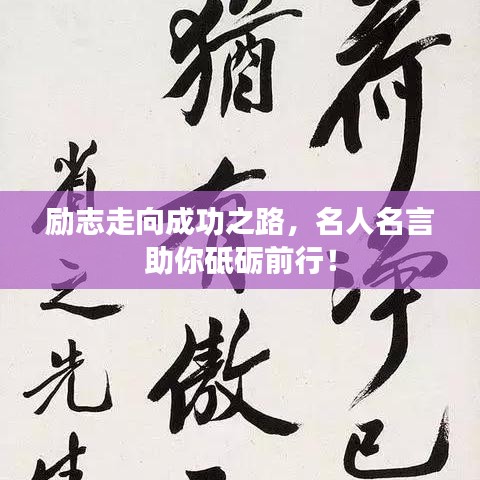 励志走向成功之路，名人名言
助你砥砺前行！
荷净已
猶有傲
省之先生